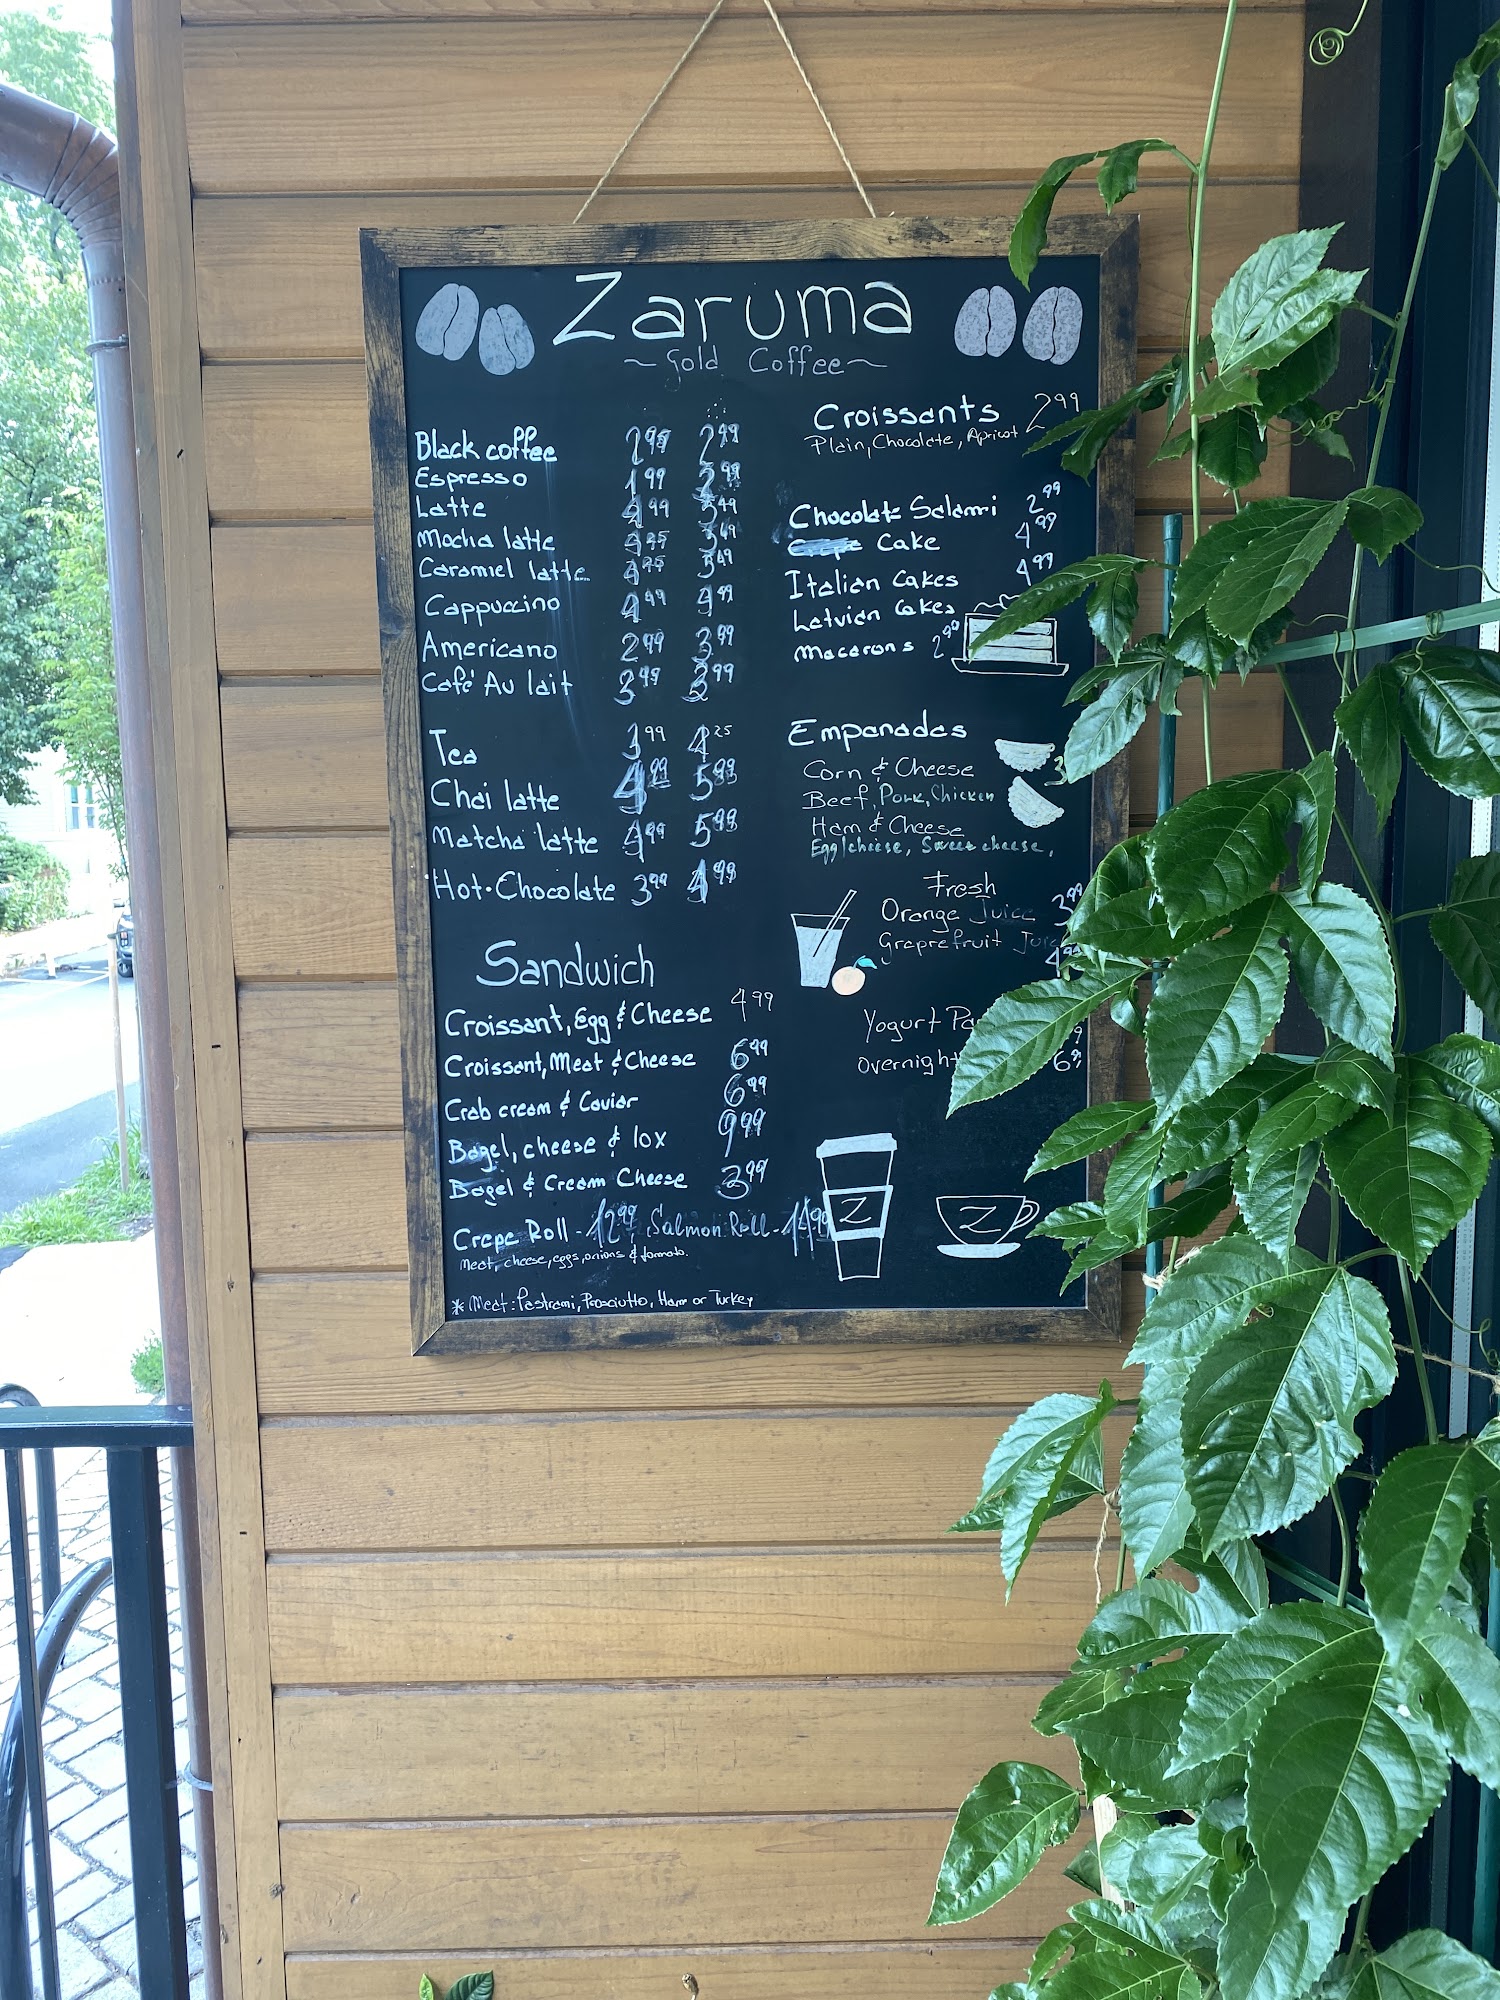 Zaruma
~ Gold Coffee ~
Black coffee 2.99 2.99
Espresso 1.99
Latte
Mocha latte
Caramel latte
Cappuccino 4.99 4.99
Americano 2.99 3.99
Café Au lait 3.99
Tea 3.99 4.25
Chai latte
Matcha latte 4.99 5.99
Hot Chocolate 3.99 4.99
Sandwich
Croissant, Egg & Cheese 4.99
Croissant, Meat & Cheese 6.99
Crab cream & Caviar 6.99
Bagel, cheese & lox 9.99
Bagel & Cream Cheese 3.99
Crepe Roll - 12.99 Salmon Roll - 14.99
Meat, cheese, eggs, onions & tomato.
* Meat: Pastrami, Prosciutto, Ham or Turkey
Croissants 2.99
Plain, Chocolate, Apricot
Chocolate Salami 2.99
Cake 4.99
Italian Cakes 4.99
Latvian Cakes
Macarons 2.90
Empanadas
Corn & Cheese 3
Beef, Pork, Chicken
Ham & Cheese
Egg/cheese, Sweet cheese,
Fresh
Orange Juice 3.99
Graprefruit 4.99
Yogurt
Overnight
Z
Z